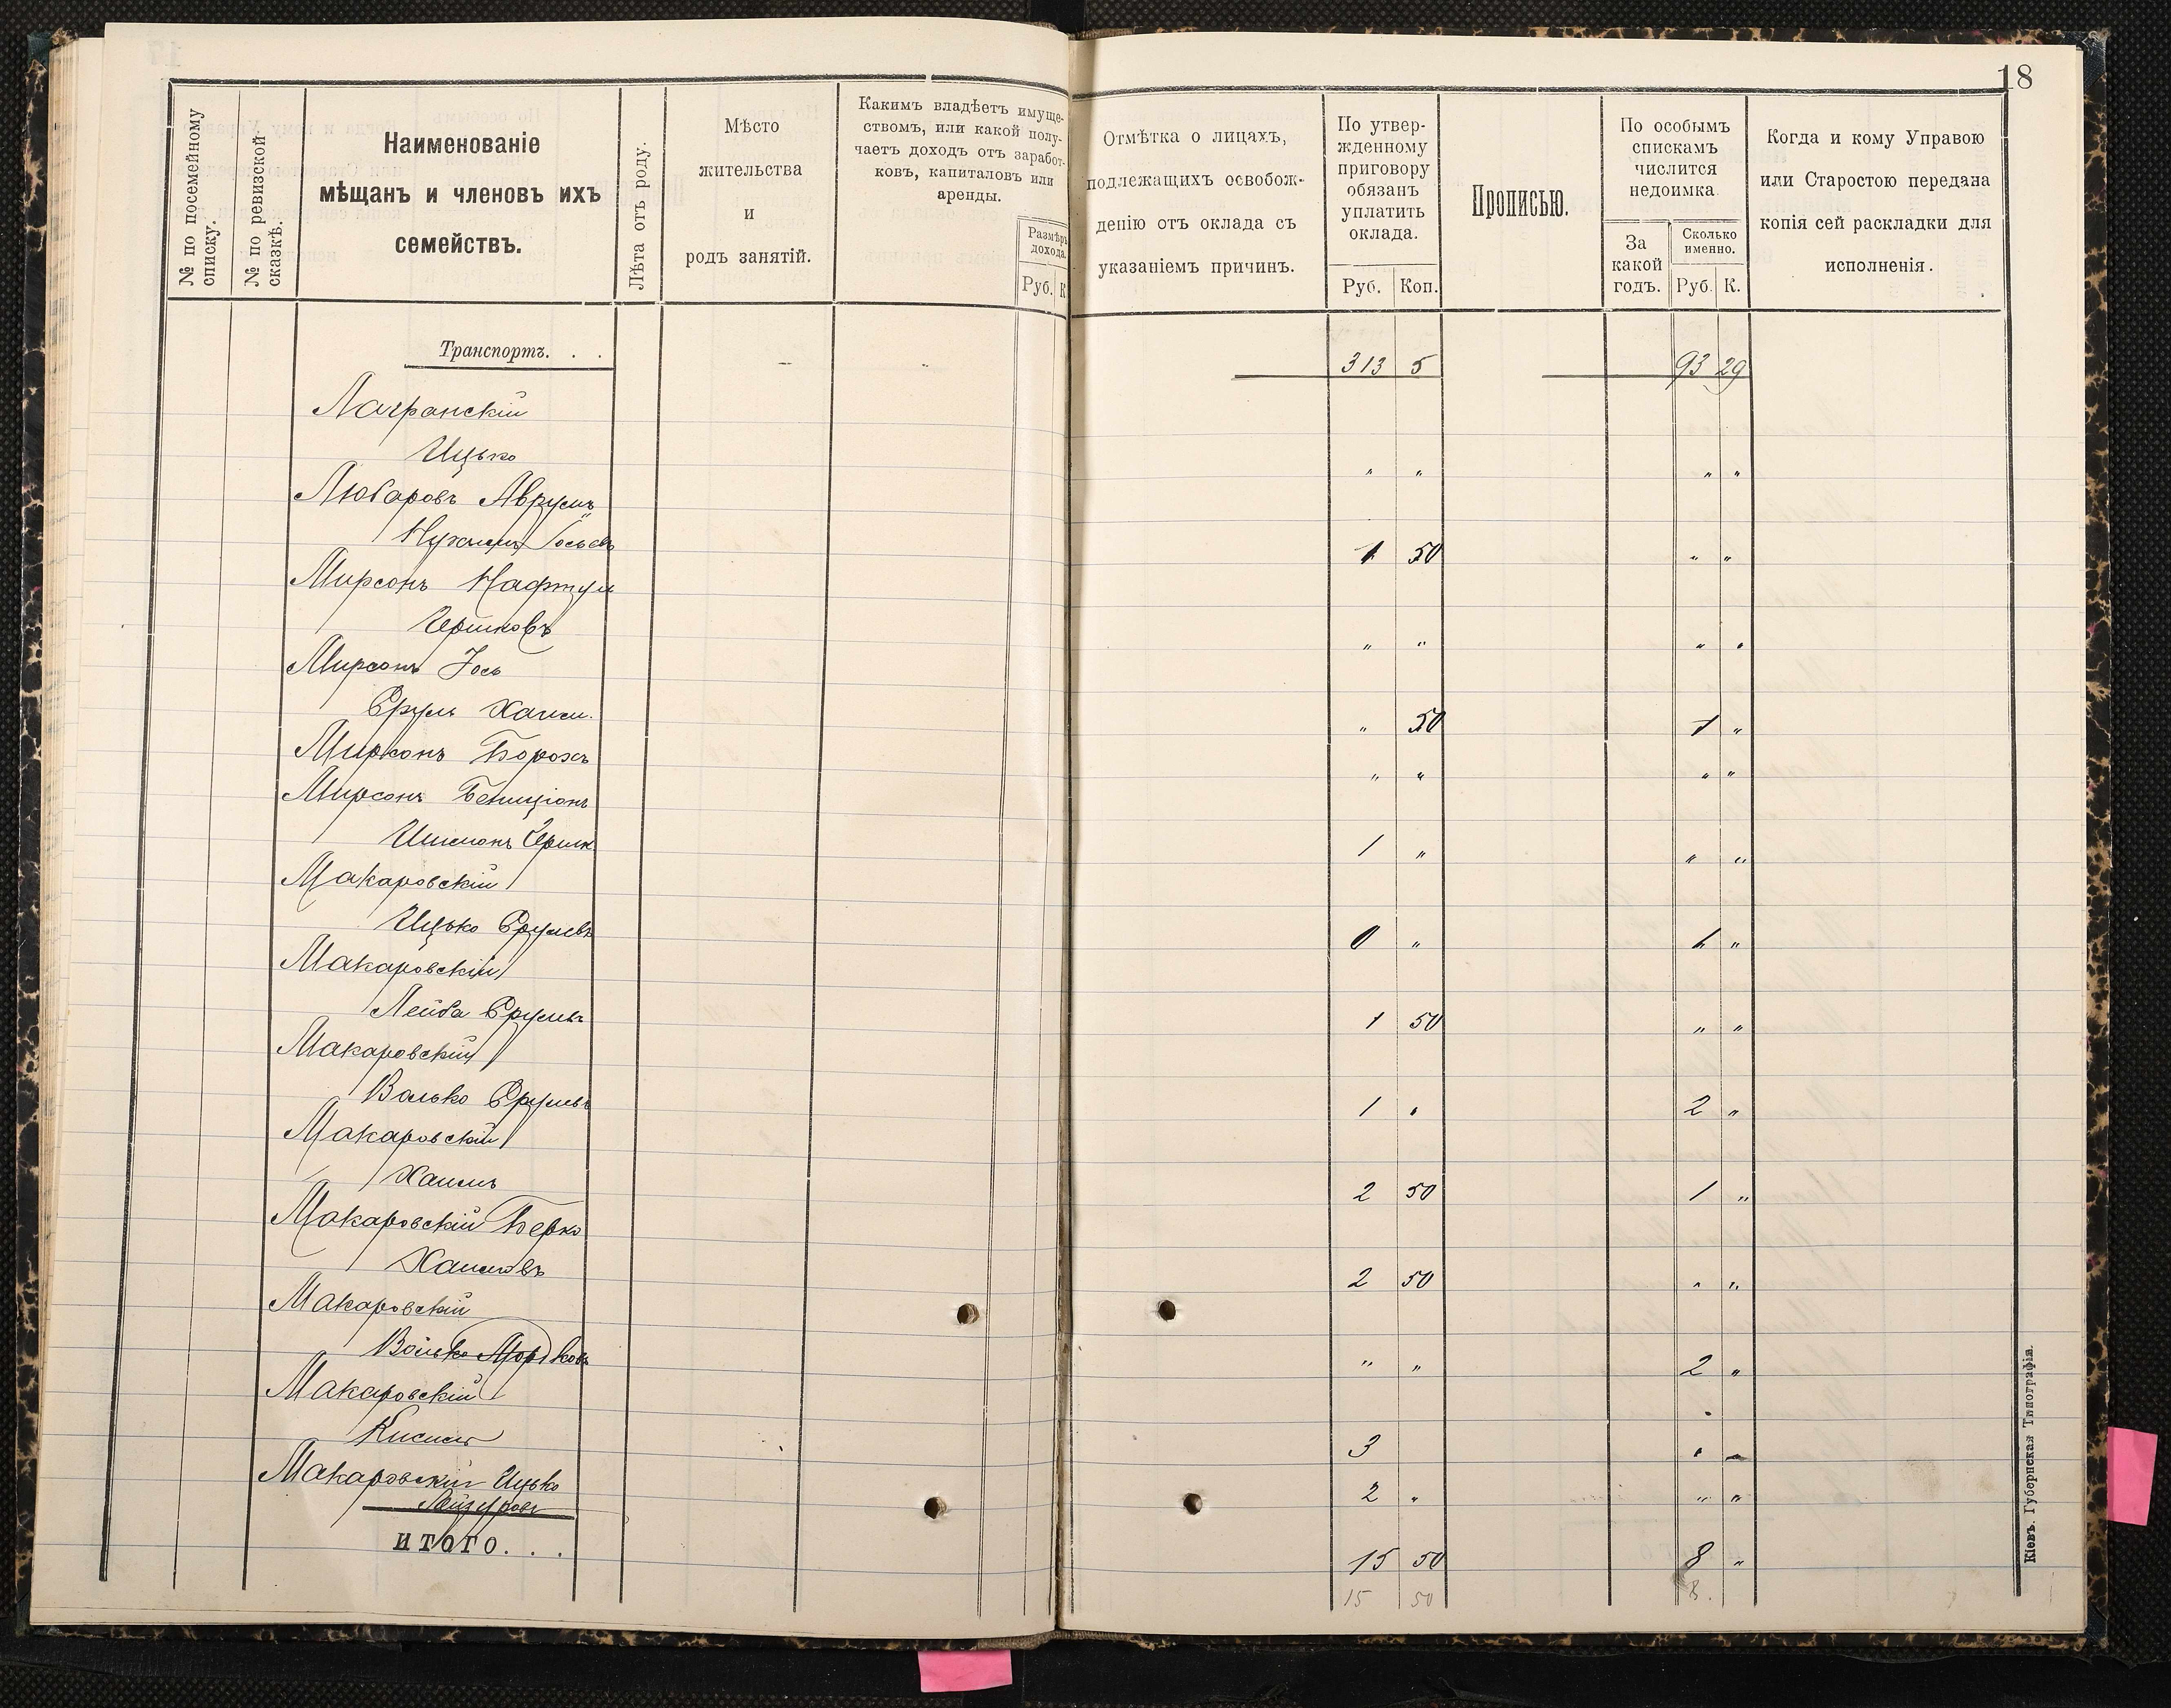 18
№ по посемейному списку.
№ по ревизской сказкѣ.
Наименованіе
мѣщанъ и членовъ ихъ
семействъ.
Лѣта отъ роду.
Мѣсто
жительства
и
родъ занятій.
Какимъ владѣетъ имуще-
ствомъ, или какой полу-
чаетъ доходъ отъ заработ-
ковъ, капиталовъ или
аренды.
Размѣръ
дохода.
Руб. К
Отмѣтка о лицахъ,
подлежащихъ освобож-
денію отъ оклада съ
указаніемъ причинъ.
По утвер-
жденному
приговору
обязанъ
уплатить
оклада.
Руб. Коп.
Прописью.
По особымъ
спискамъ
числится
недоимка
За
какой
годъ.
Сколько
именно.
Руб. К.
Когда и кому Управою
или Старостою передана
копія сей раскладки для
исполненія.
Транспортъ. . . 313 5 93 29
Лагранскій
Ицько " " " "
Любаровъ Аврумъ
Нухимъ Іосьев 1 50 " "
Мирсонъ Нафтул
Гершковъ " " " "
Мирсонъ Іось
Сруль Хаим. " 50 1 "
Мирсонъ Борохъ " " " "
Мирсонъ Бенціонъ
Шимонъ Гершк. 1 " " "
Макаровскій
Ицько Срулевъ 0 " 1 "
Макаровскій
Лейба Срулев 1 50 " "
Макаровскій
Волько Срулев 1 " 2 "
Макаровскій
Хаимъ 2 50 1 "
Макаровскій Берко
Хаимовъ 2 50 " "
Макаровскій
Волько Мордков " " 2 "
Макаровскій
Кисиль 3 " "
Макаровскій Ицько
Лейзеров 2 " " "
ИТОГО. . . 15 50 8 "
15 50 8.
Кіевъ. Губернская Типографія.